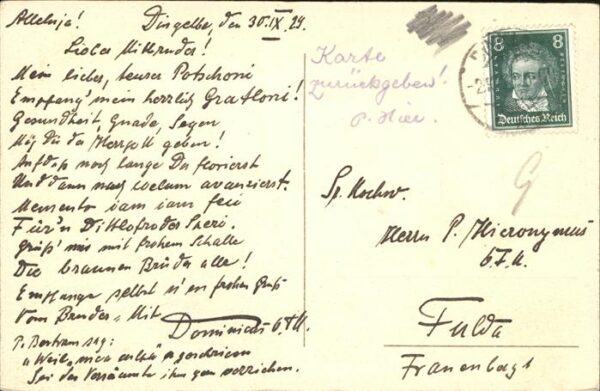 Alleluja! Dingelbe, den 30.IX.29.
Lieber Mitbruder!
Mein lieber, teurer Potschoni
Empfang' mein herzlich Gratloni!
Gesundheit, Gnade, Segen
Mög Dir der Herrgott geben!
Auf daß noch lange Du florierst
Und dann nach coelum avanzierst.
Memento iam iam
Für'n Dittlofroder
Grüß' mir mit frohem Schalle
Die braunen Brüder alle!
Empfange selbst 'nen frohen Gruß
Vom Bruder
Dominicus O.F.M.
P. Bertram sag:
"Weil" geschrieen
Sei das Versäumte ihm gern verziehen.
Karte
zurückgeben!
P. Hier.
8 8
Deutsches Reich
Sr. Hochw.
Herrn P. Hieronymus
O.F.M.
Fulda
Frauenberg